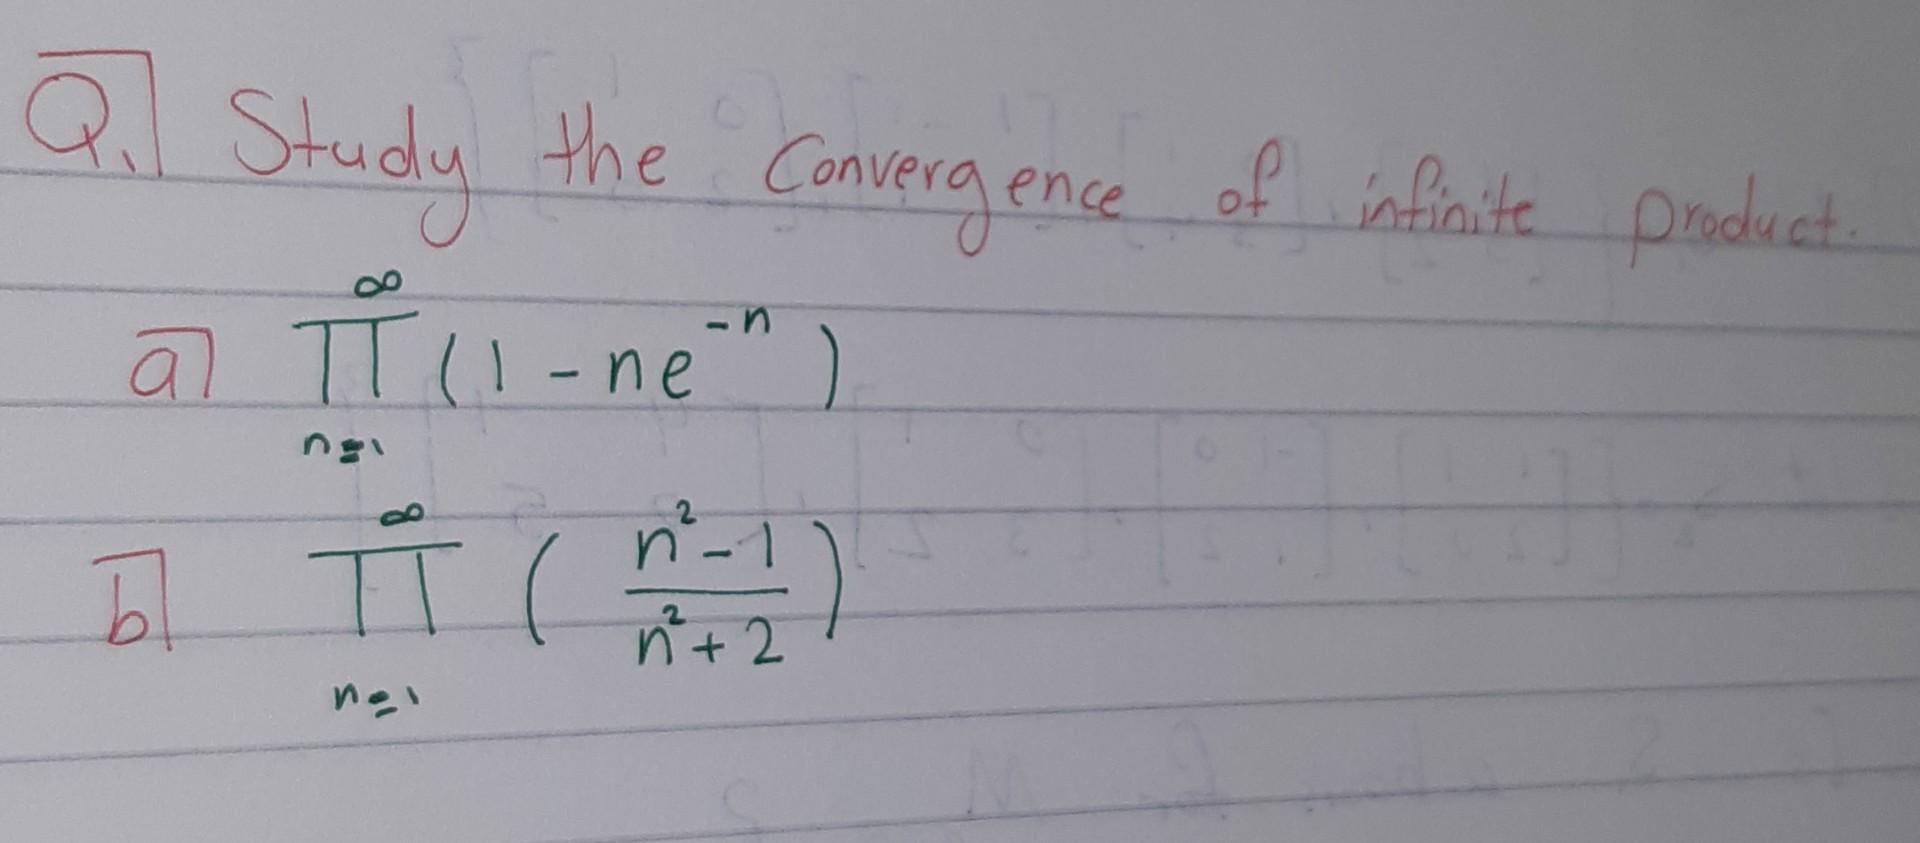 Q. Study the Convergence of infinite product.
a) ∞∏n=1 (1 - ne^-n)
b) ∞∏n=1 (n²-1 / n²+2)